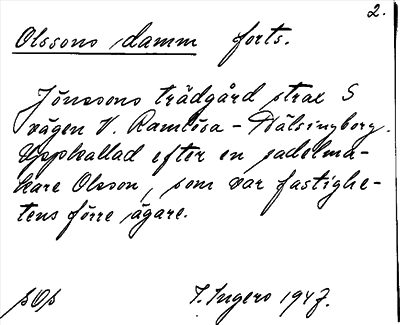 2.
Olssons damm forts.
Jönssons trädgård strax S
vägen V. Ramlösa - Hälsingborg.
Uppkallad efter en sadelma-
kare Olsson, som var fastighe-
tens förre ägare.
pOp I. Ingers 1947.